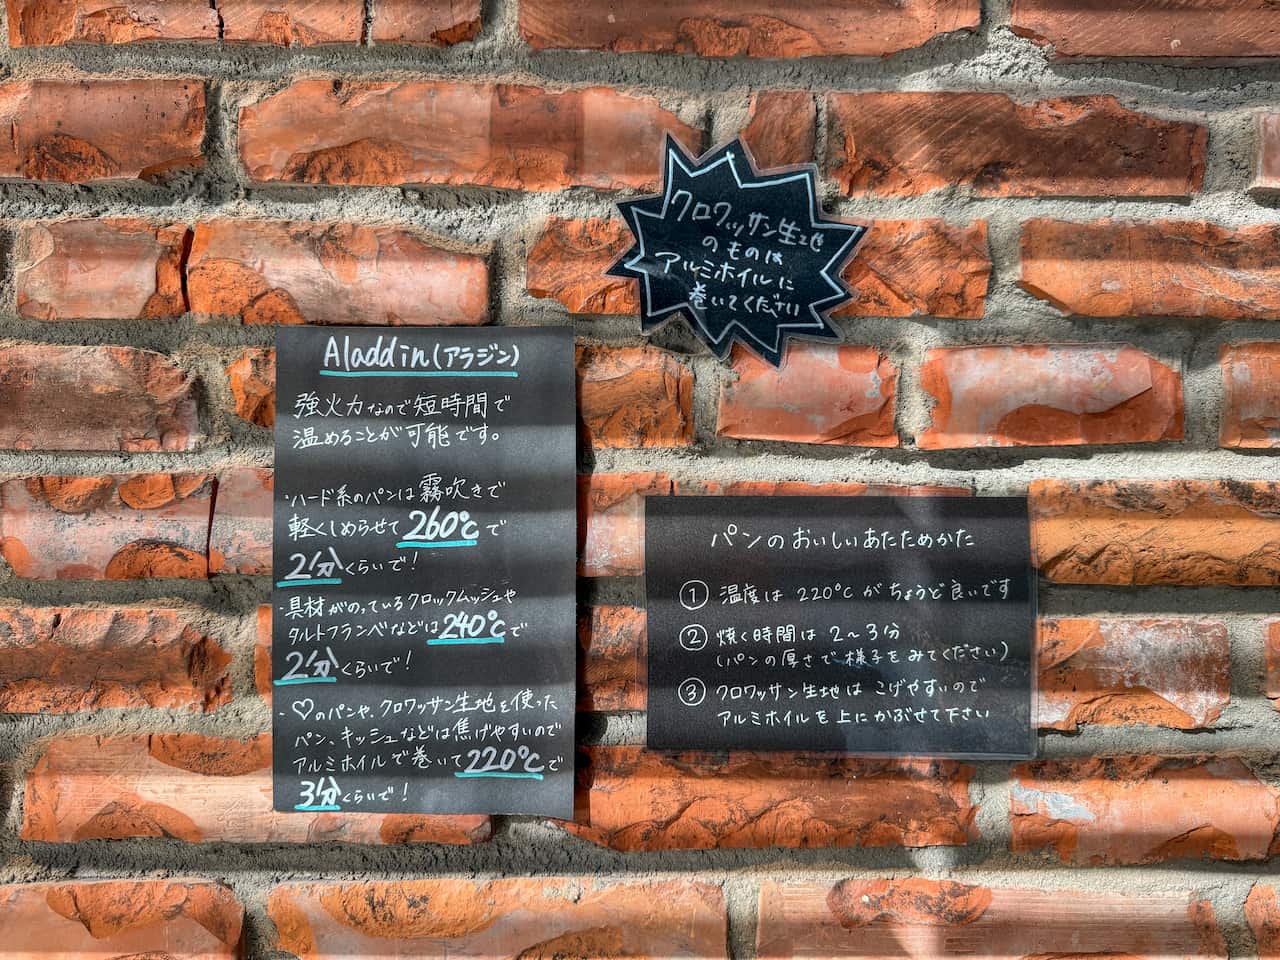 クロワッサン生地
のものは
アルミホイルに
巻いてください
Aladdin(アラジン)
強火力なので短時間で
温めることが可能です。
・ハード系のパンは霧吹きで
軽くしめらせて260℃で
2分くらいで!
・具材がのっているクロックムッシュや
タルトフランベなどは240℃で
2分くらいで!
・♡のパンや、クロワッサン生地を使った
パン、キッシュなどは焦げやすいので
アルミホイルで巻いて220℃で
3分くらいで!
パンのおいしいあたためかた
① 温度は 220℃がちょうど良いです
② 焼く時間は 2〜3分
(パンの厚さで様子をみてください)
③ クロワッサン生地は こげやすいので
アルミホイルを上にかぶせて下さい